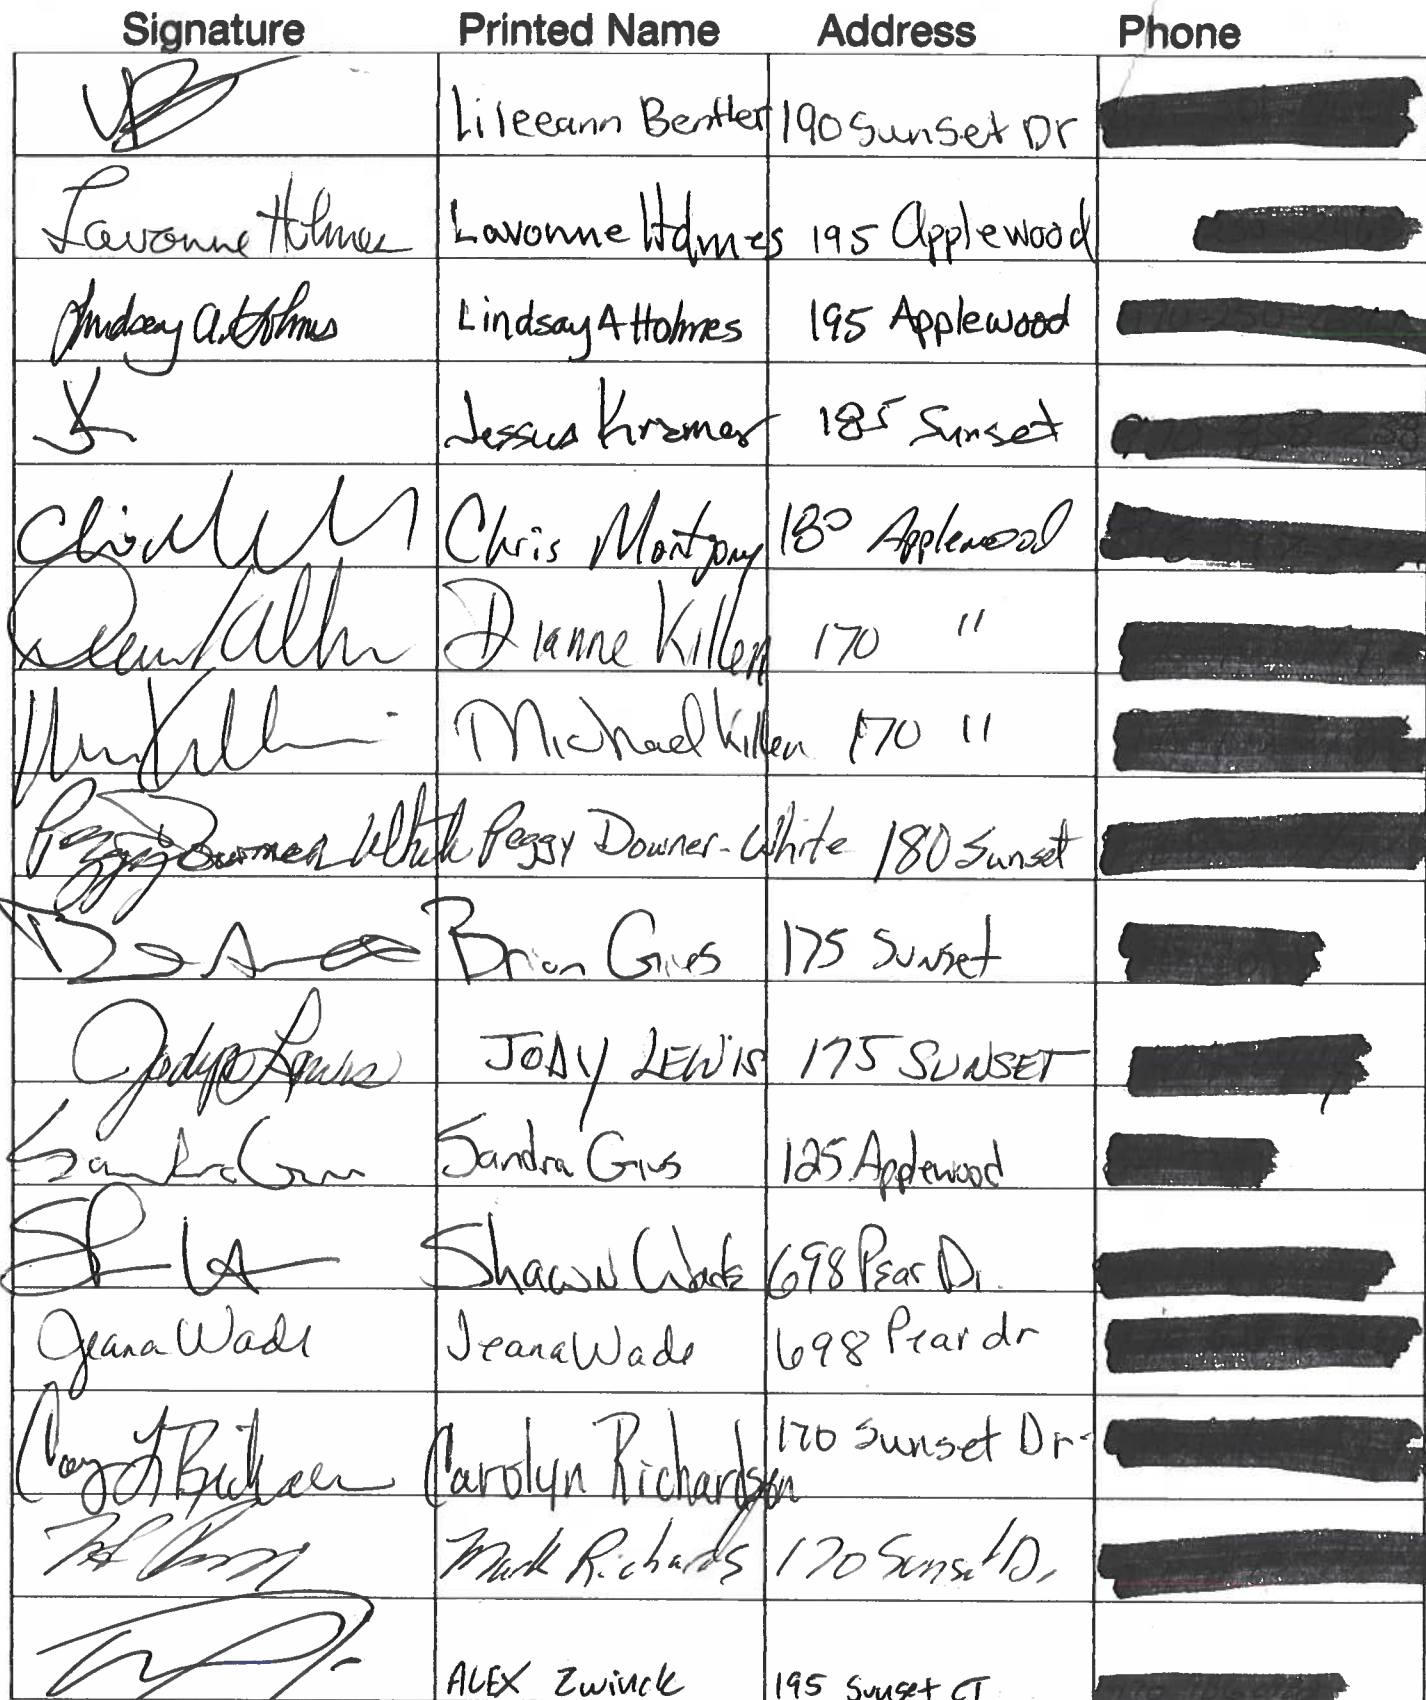 Signature Printed Name Address Phone
Lileeann Bentler 190 Sunset Dr
Lavonne Holmes Lavonne Holmes 195 Applewood
Lindsay A. Holmes Lindsay A Holmes 195 Applewood
Kramer 185 Sunset
Chris 180 Applewood
Dianne Killen 170 "
Michael Killen 170 "
Peggy Downer White Peggy Downer-White 180 Sunset
Brian 175 Sunset
Jody Lewis JODY LEWIS 175 SUNSET
Sandra 125 Applewood
Shawn Wade 698 Pear Dr.
Jeana Wade Jeana Wade 698 Pear dr
Carolyn Richardson 170 Sunset Dr.
Mark Richards 170 Sunset Dr
ALEX Zwinck 195 Sunset CT